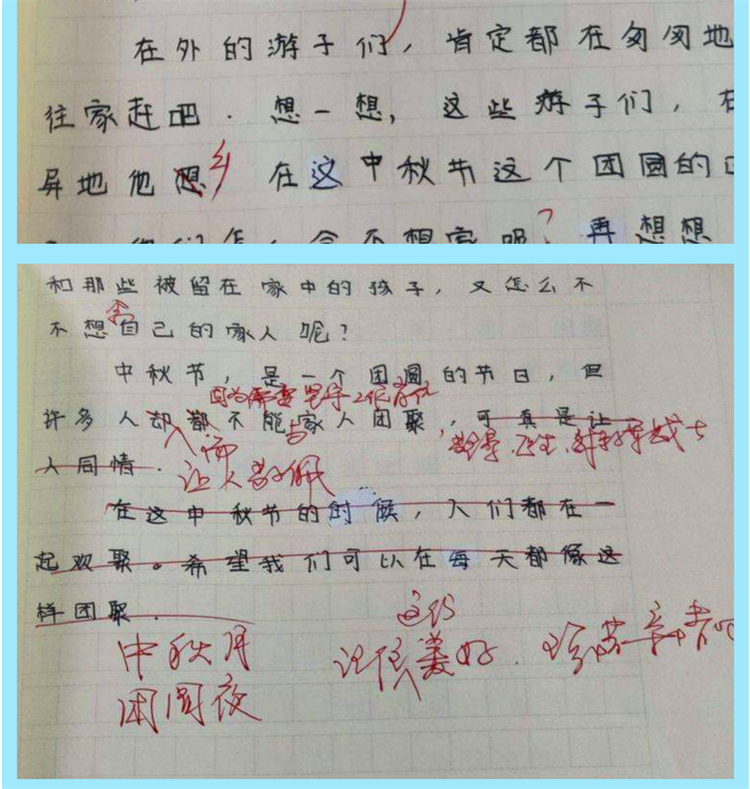 在外的游子们，肯定都在匆匆地
往家赶吧．想一想，这些游子们，在
异地他想，在这中秋节这个团圆的
乡
不想家呢？再想想
和那些被留在家中的孩子，又怎么不
不想自己的家人呢？
中秋节，是一个团圆的节日，但
因为需要坚守工作岗位
许多人却都不能家人团聚，可真是让
与
人同情．
让人敬佩
在这中秋节的时候，人们都在一
起欢聚。希望我们可以在每天都像这
样团聚．
中秋月
团圆夜
这份
记住美好．